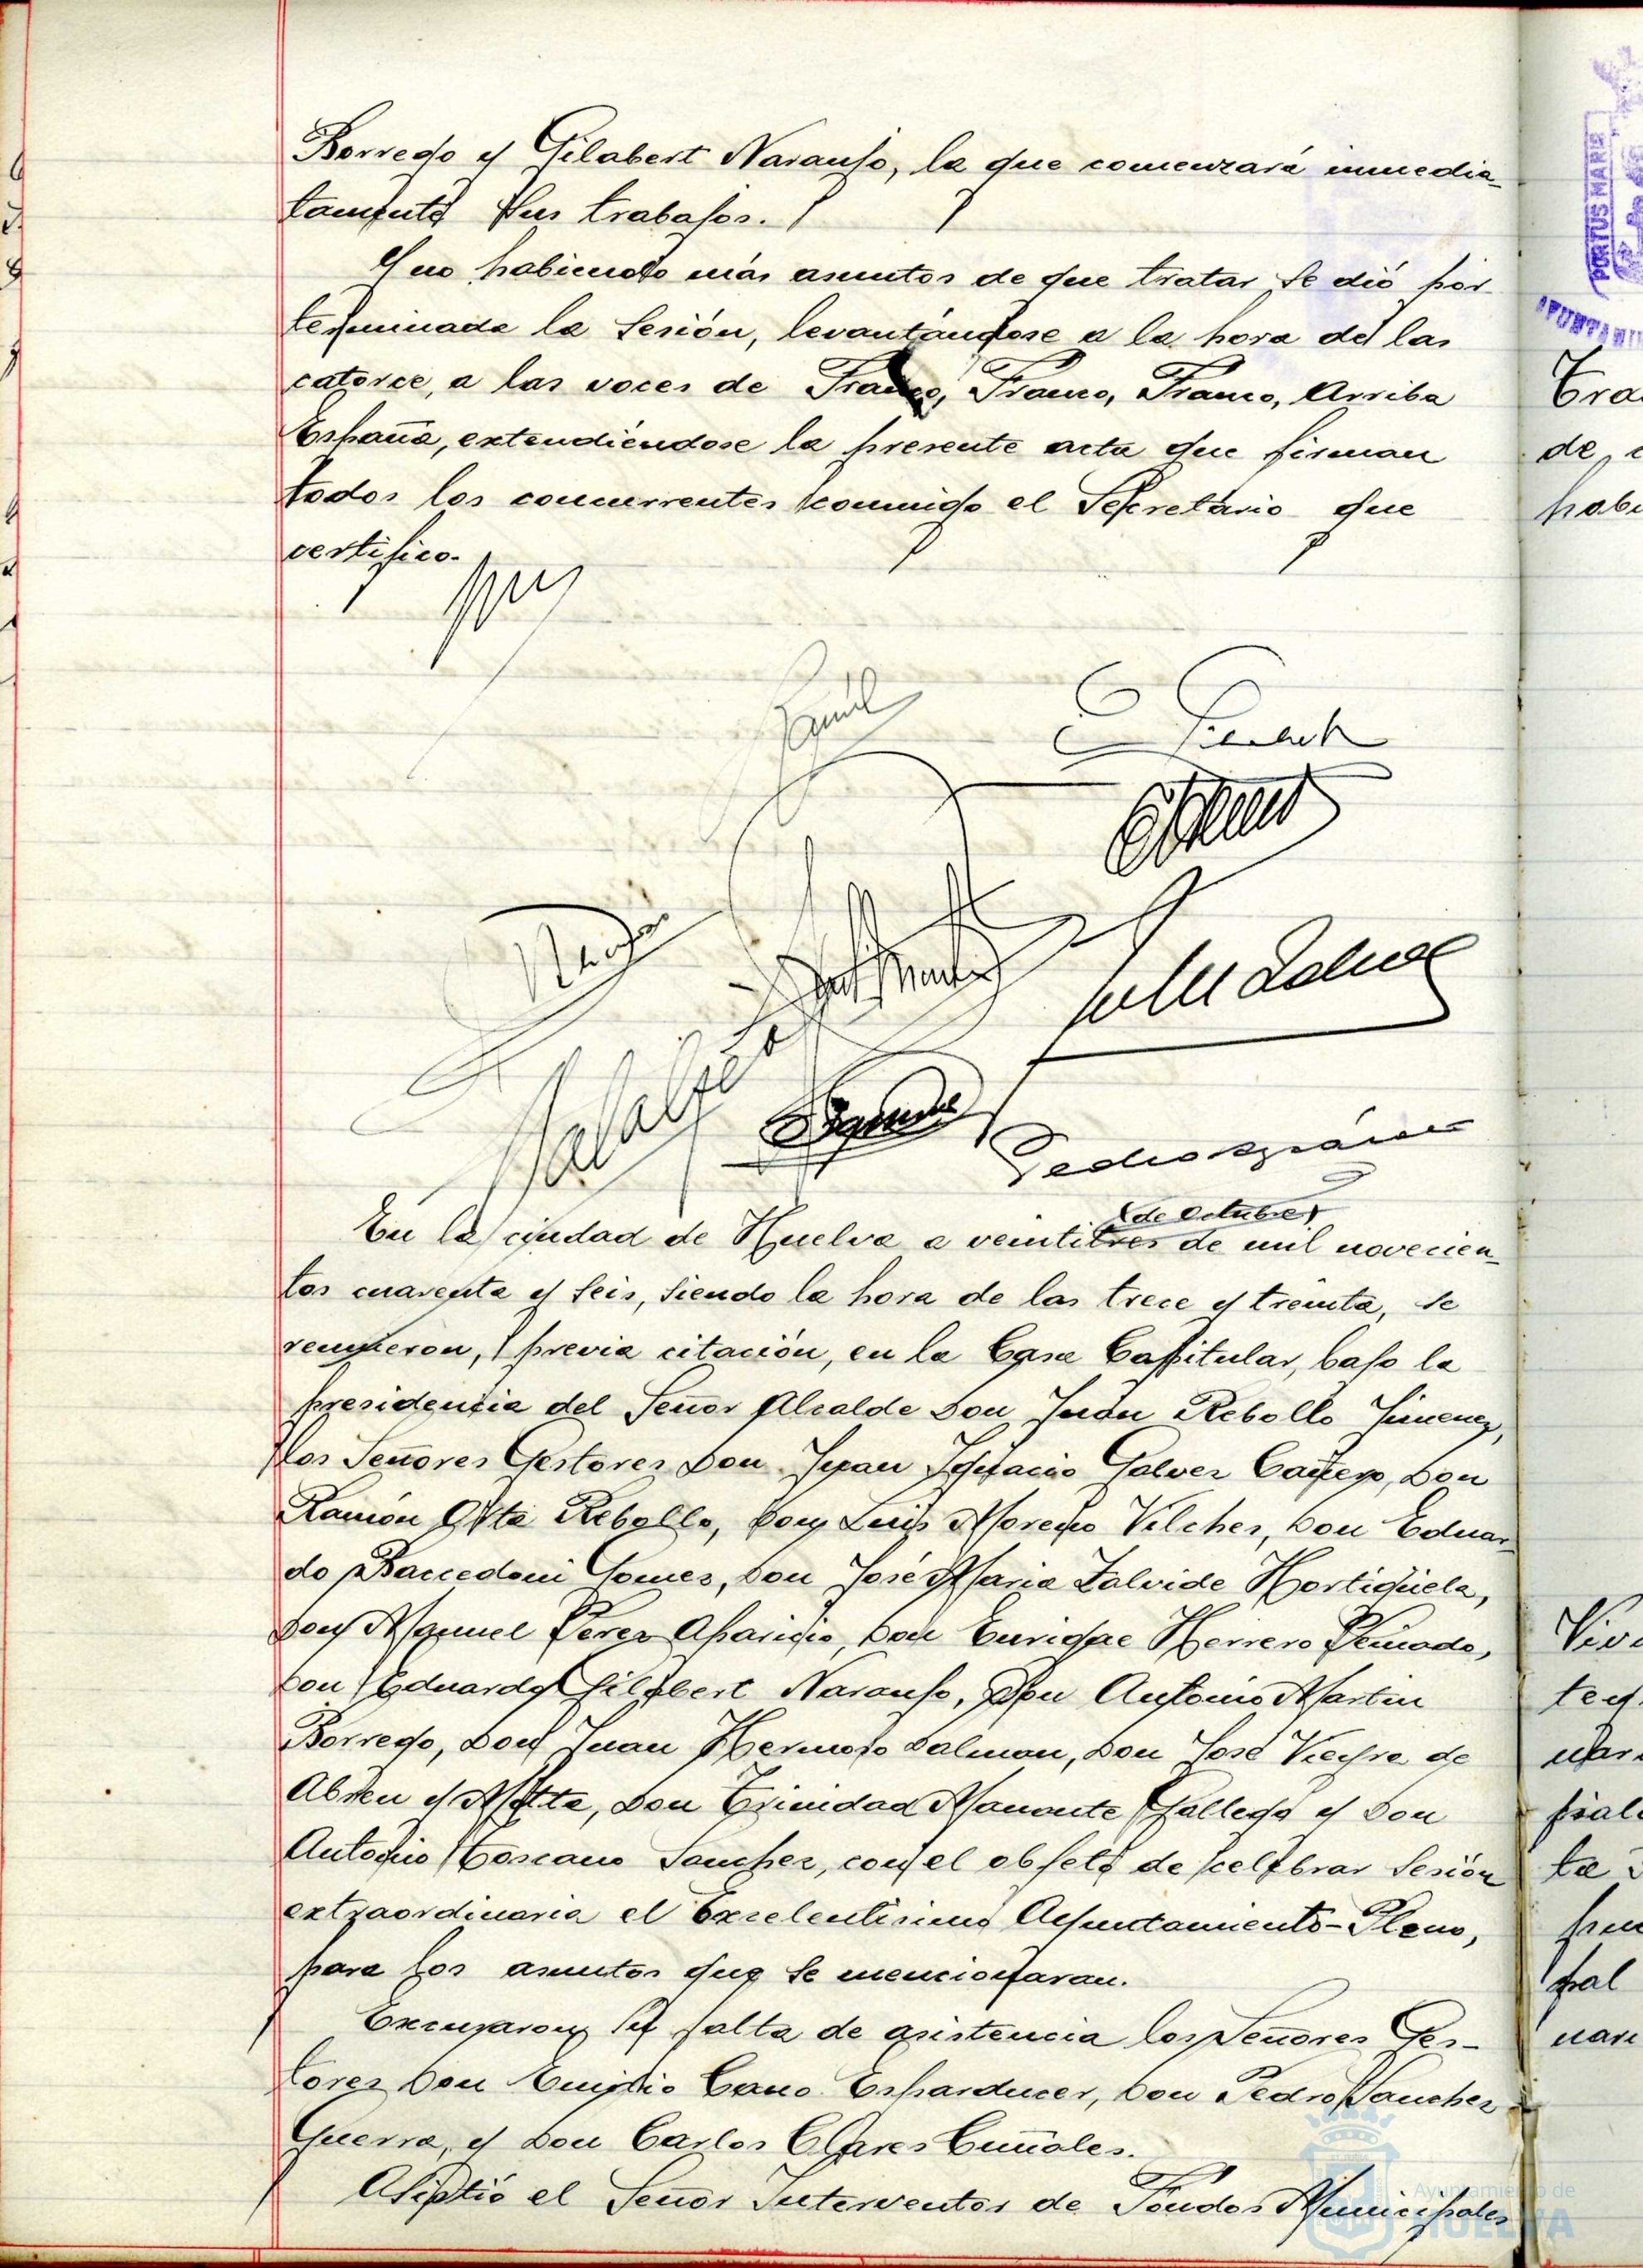 Borrego y Gilabert Naranjo, la que comenzará inmedia-
tamente sus trabajos.
Y no habiendo más asuntos de que tratar se dió por
terminada la Sesión, levantándose a la hora de las
catorce, a las voces de Franco, Franco, Franco, Arriba
España, extendiéndose la presente acta que firman
todos los concurrentes conmigo el Secretario que
certifico.
Gilabert
Pedro
de Octubre
En la ciudad de Huelva a veintitres de mil novecien-
tos cuarenta y seis, siendo la hora de las trece y treinta, se
reunieron, previa citación, en la Casa Capitular, bajo la
presidencia del Señor Alcalde Don Juan Rebollo Jimenez,
los Señores Gestores Don Juan Ignacio Galvez Cañero, Don
Ramón Rebollo, Don Luis Moreno Vilches, Don Eduar-
do Gomez, Don José Maria Zalvide Hortigüela,
Don Manuel Perez Aparicio, Don Enrique Herrero Peinado,
Don Eduardo Gilabert Naranjo, Don Antonio Martin
Borrego, Don Juan Hermoso Salmon, Don José Vieyra de
Abreu y Motta, Don Trinidad Manante Gallego y Don
Antonio Toscano Sanchez, con el objeto de celebrar Sesión
extraordinaria el Excelentisimo Ayuntamiento-Pleno,
para los asuntos que se mencionaran.
Excusaron su falta de asistencia los Señores Ges-
tores Don Emilio Cano Don Pedro Sanchez
Guerra, y Don Carlos Clares Cuñales.
Asistió el Señor Interventor de Fondos Municipales
PORTUS MARIS
Ayuntamiento de
HUELVA